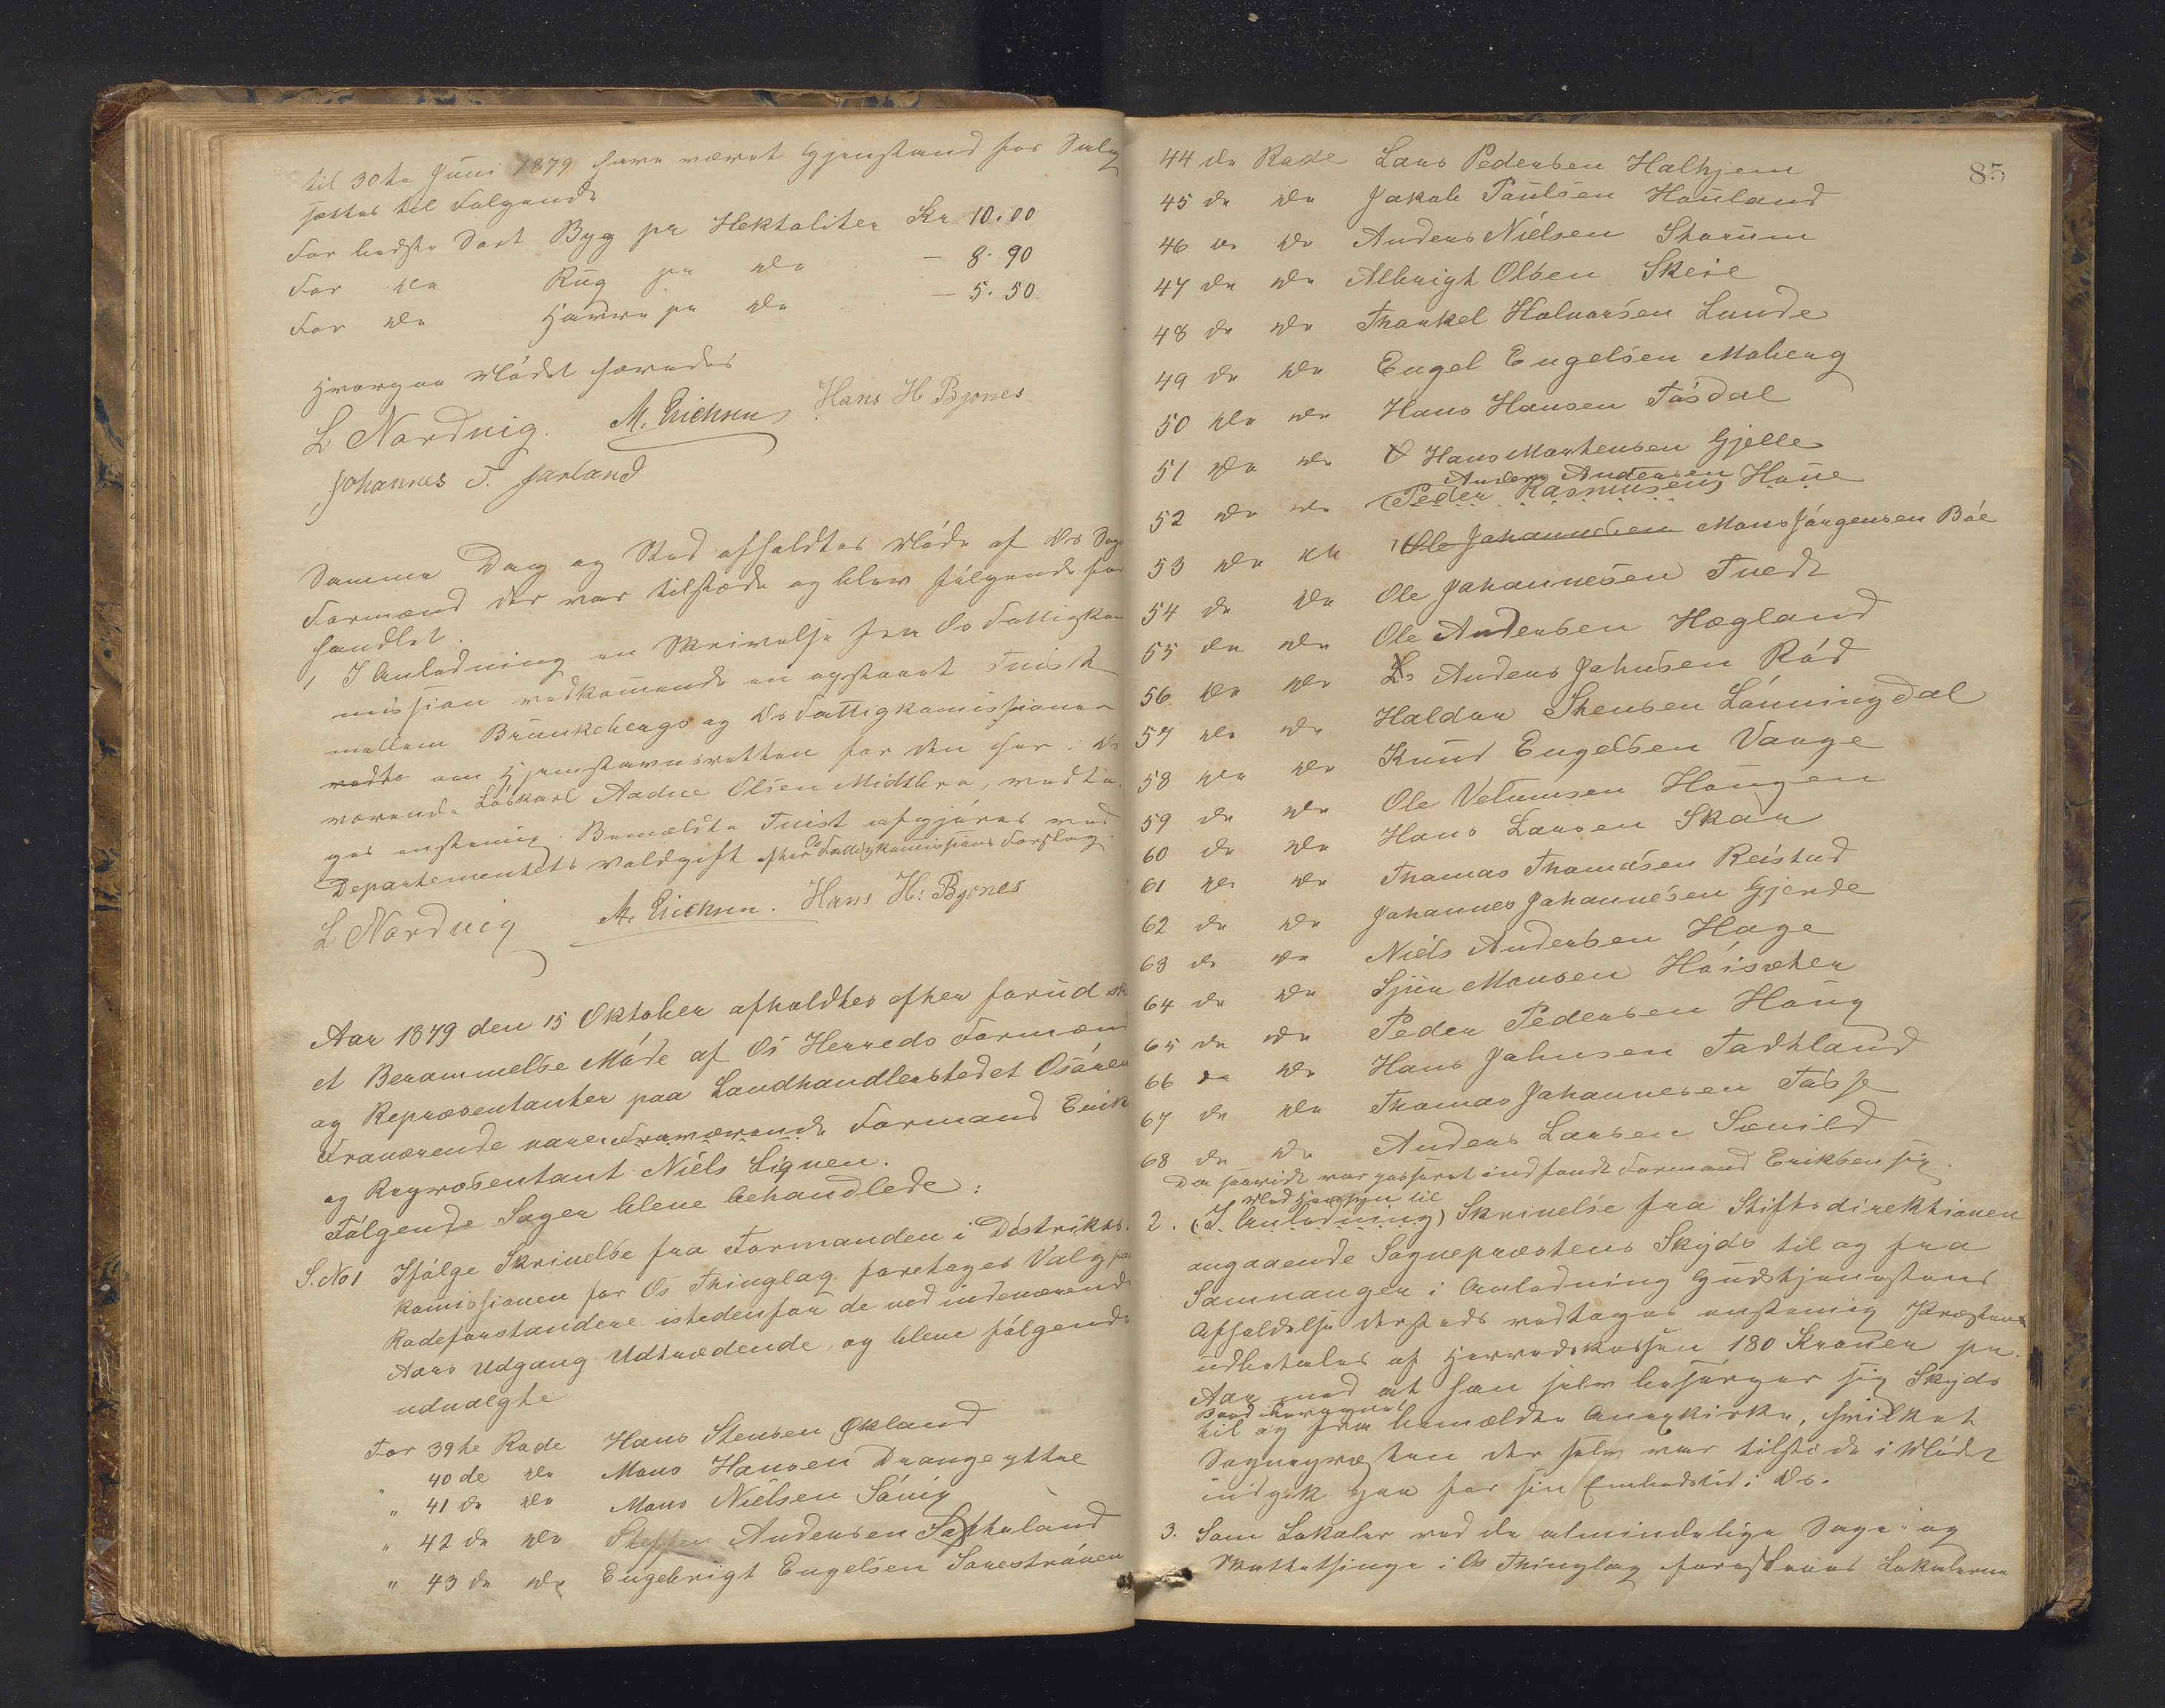 til 30te Juni 1879 have været Gjenstand for Salg
sættes til Følgende
For bedste Sort Byg pr Hektoliter Kr 10.00
For do Rug pr do - 8.90
For do Havre pr do - 5.50.
Hvorpaa Mødet hævedes
L Nordvig. M. Erichsen Hans H Bjørnes
Johannes T. Hatland
Samme Dag og Sted afholdtes Møde af Os Sogns
Formænd der var tilstæde og blev følgende for
handlet.
1 I Anledning en Skrivelse fra Os Fattigkom
mission vedkommende en opstaaet Tvist
mellem Brunkebergs og Os Fattigkomissioner
om Hjemstavnsretten for den her i Os
værende Løskarl Aadne Olsen Midtbrø, vedta
ges enstemig. Bemældte Tvist afgjøres ved
Departementets Voldgift efter Os Fattigkomissions Forslag.
L Nordvig M. Erichsen. Hans H: Bjørnes
Aar 1879 den 15 Oktober afholdtes efter forud sk
et Berammelse Møde af Os Herreds Formænd
og Repræsentanter paa Landhandlerstedet Osøren
Fraværende vare: Fraværende Formand Erik
og Repræsentant Niels Lignen.
Følgende Sager bleve behandlede:
S. No 1 Ifølge Skrivelse fra Formanden i Distrikts.
komissionen for Os Thinglag foretages Valg paa
Rodeforstandere istedenfor de ved indeværende
Aars Udgang Udtrædende, og bleve følgende
udvalgte
For 39te Rode Hans Stensen Økland
" 40de do Mons Hansen Drange yttre
" 41de do Mons Nielsen Søvig
" 42de do Steffen Andersen Sørtveland
" 43de do Engebrigt Engelsen Sorestrånen
85
44de Rode Lars Pedersen Halhjem
45de do Jakob Paulsen Hauland
46de do Anders Nielsen Storum
47de do Albrigt Olsen Skeie
48de do Thorkel Halvorsen Lunde
49de do Engel Engelsen Moberg
50de do Hans Hansen Tøsdal
51de do Hans Mortensen Gjelle
Anders Andersen
52de do (Peder Rasmusen) Haue
53de do Ole Johannesen Mons Jørgensen Bøe
54de do Ole Johannesen Tvedt
55de do Ole Andersen Hegland
56de do Anders Johnsen Rød
57de do Haldor Stensen Lønningdal
58de do Knud Engelsen Vaage
59de do Ole Velumsen Haugen
60de do Hans Larsen Skar
61de do Thomas Thomasen Reistad
62de do Johannes Johannesen Gjerde
63de do Niels Andersen Hage
64de do Sjur Monsen Høisæter
65de do Peder Pedersen Haug
66de do Hans Johnsen Fadtland
67de do Thomas Johannesen Tøsse
68de do Anders Larsen Sævild
Da saavidt var passeret indfandt Formand Eriksen sig.
Med Hensyn til
2. (I Anledning) Skrivelse fra Stiftsdirektionen
angaaende Sognepræstens Skyds til og fra
Samnanger i Anledning Gudstjenestens
Afholdelse dersteds vedtages enstemig Præsten
udbetales af Herredskassen 180 Kroner pr.
Aar mod at han selv besørger sig Skyds
til og fra bemældte Annexkirke, hvilket
Sognepræsten der selv var tilstede i Mødet
indgik paa for sin Embedstid i Os.
3. Som Lokaler ved de almindelige Sage- og
Skattethinge i Os Thinglag foreslaaes Lokalerne